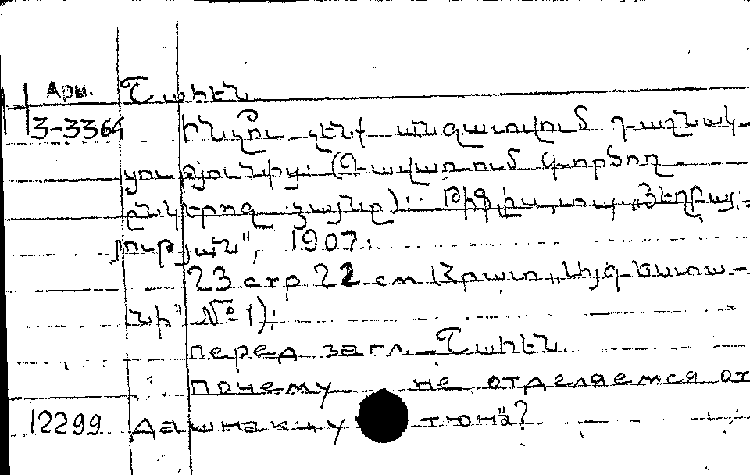 Арм. Պահէն
3-3364 Ինչու չենք անջատվում դաշնակ-
ցությունից: (Գավառում գործող
ընկերոջ ձայնը): Թիֆլիս, տպ.
ության", 1907:
23 стр 22 см (Հրատ.
№ 1):
перед загл. Պահէն
почему не отделяемся от
12299 дашнакцутюна?